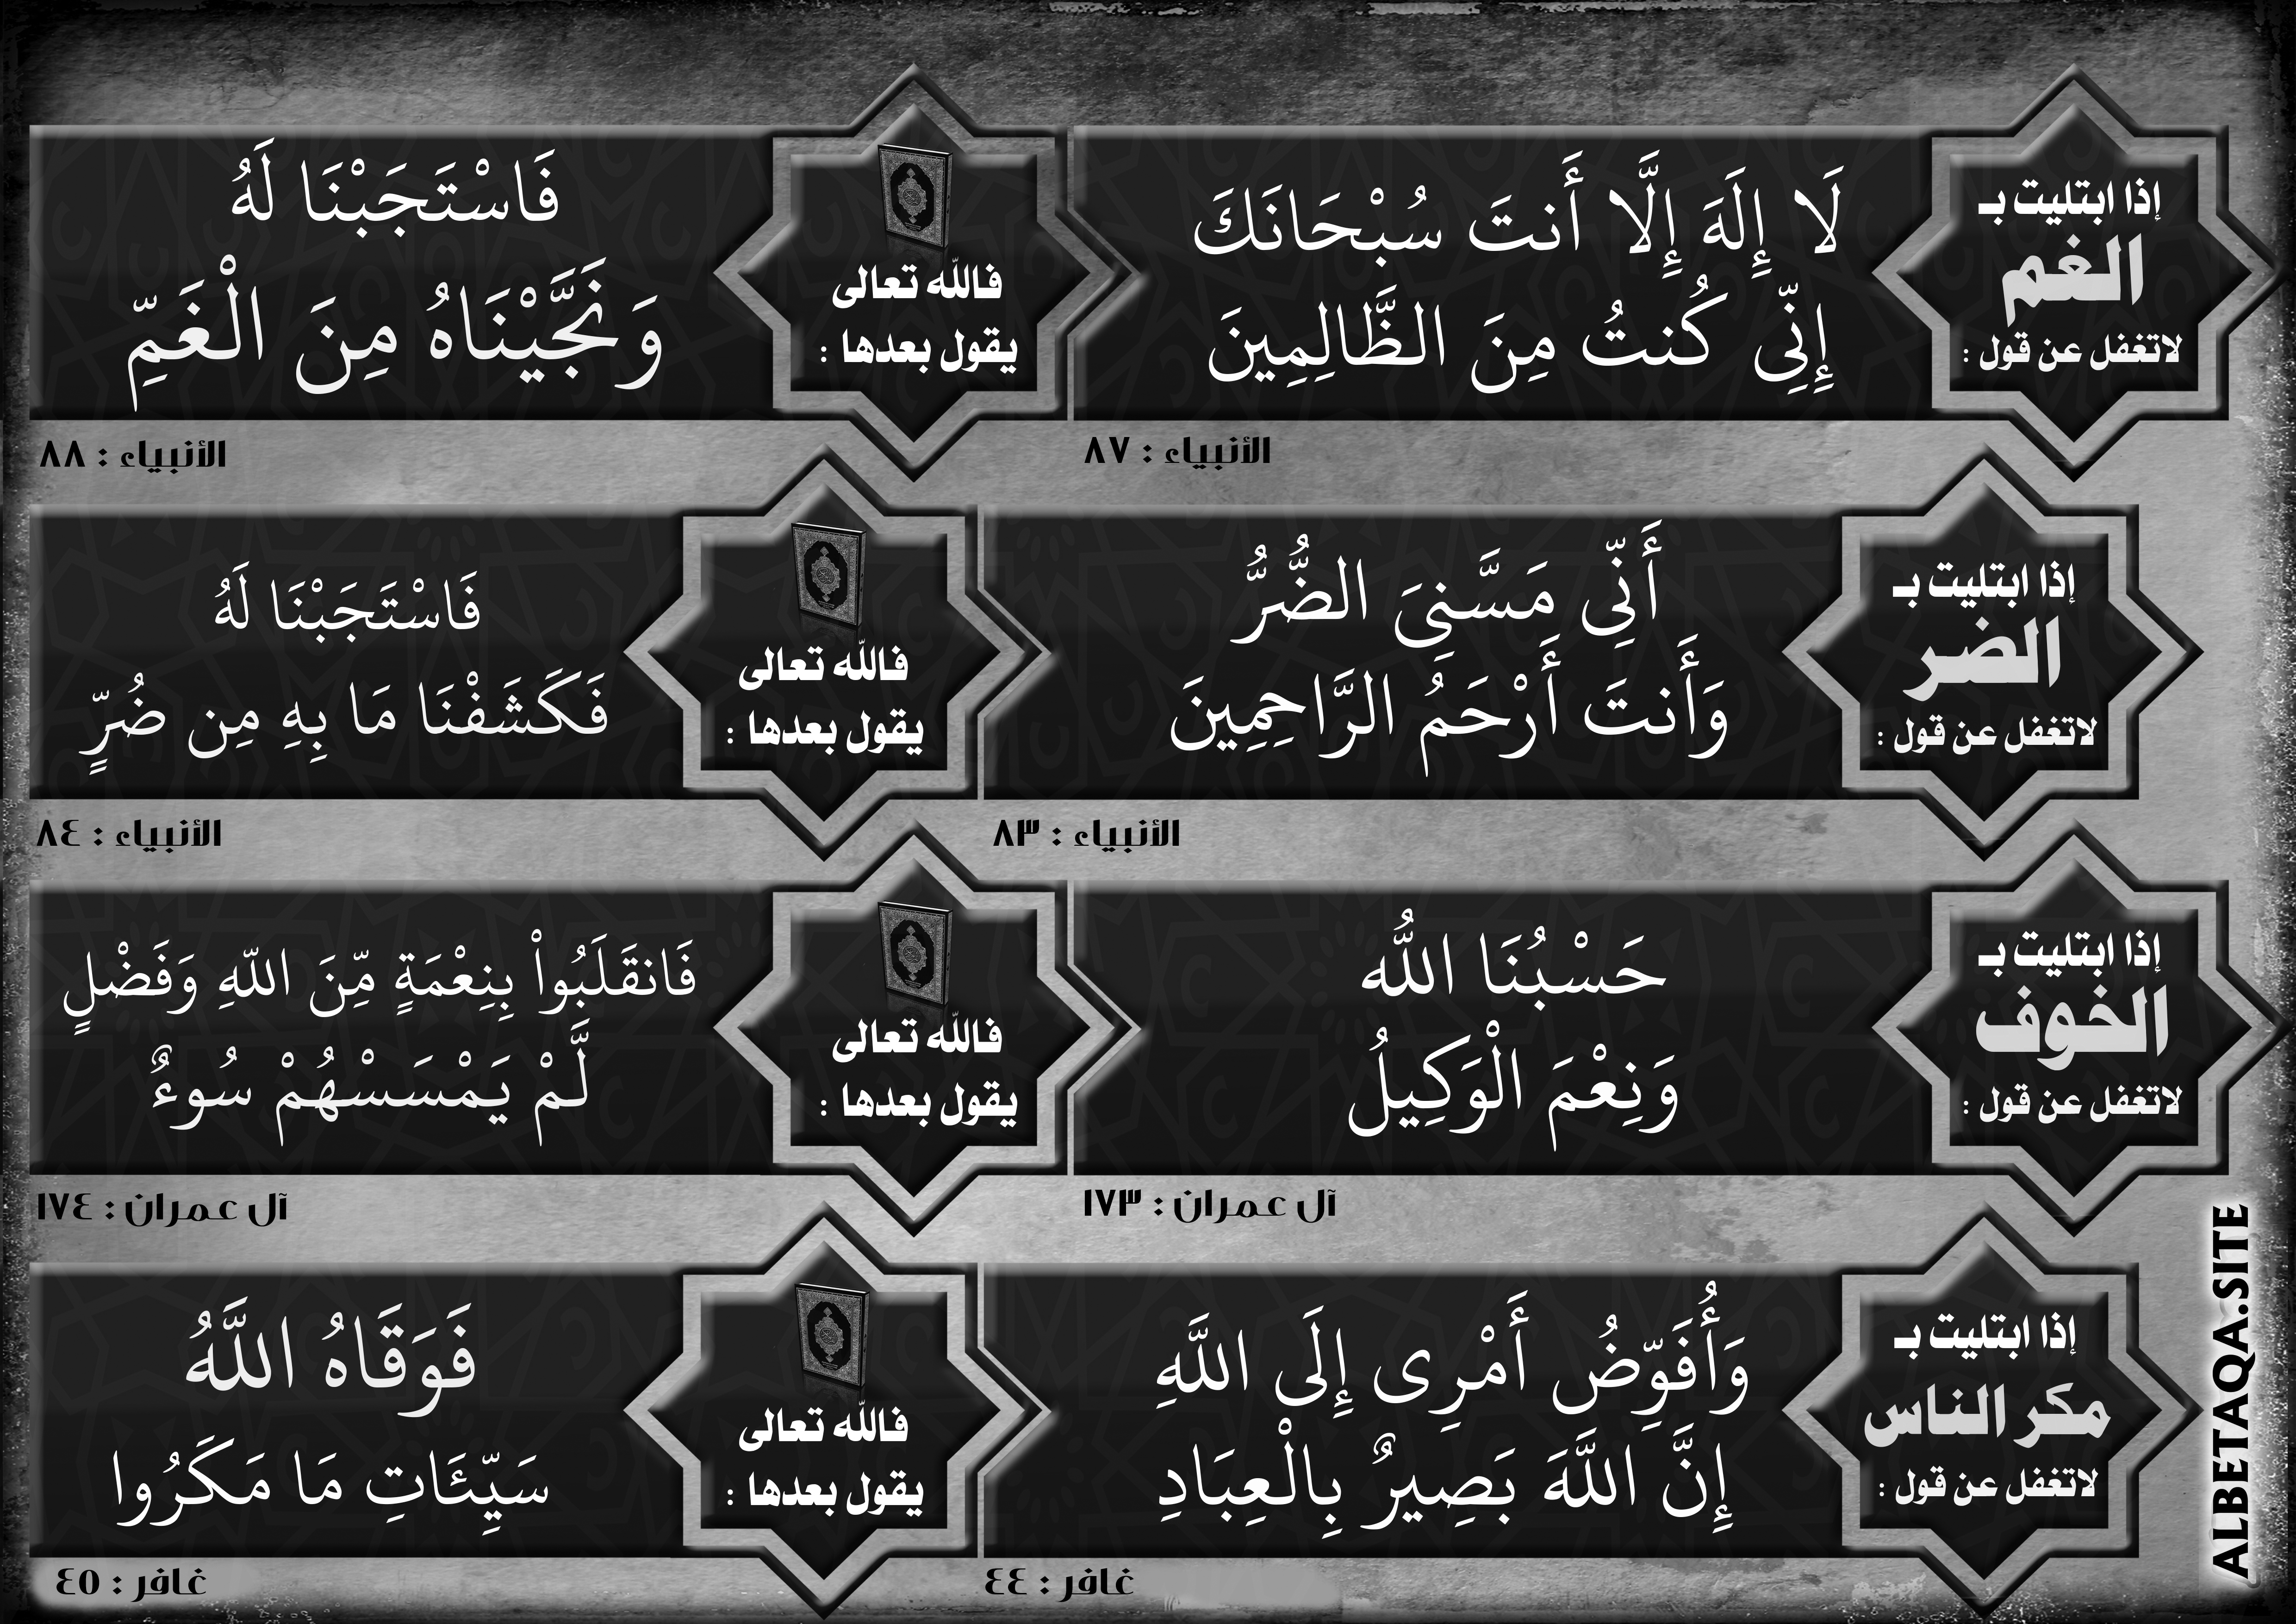 إذا ابتليت بـ
الغم
لاتغفل عن قول :
لَا إِلَهَ إِلَّا أَنتَ سُبْحَانَكَ
إِنِّى كُنتُ مِنَ الظَّالِمِينَ
الأنبياء : ٨٧
فالله تعالى
يقول بعدها :
فَاسْتَجَبْنَا لَهُ
وَنَجَّيْنَاهُ مِنَ الْغَمِّ
الأنبياء : ٨٨
إذا ابتليت بـ
الضر
لاتغفل عن قول :
أَنِّى مَسَّنِىَ الضُّرُّ
وَأَنتَ أَرْحَمُ الرَّاحِمِينَ
الأنبياء : ٨٣
فالله تعالى
يقول بعدها :
فَاسْتَجَبْنَا لَهُ
فَكَشَفْنَا مَا بِهِ مِن ضُرٍّ
الأنبياء : ٨٤
إذا ابتليت بـ
الخوف
لاتغفل عن قول :
حَسْبُنَا اللّٰهُ
وَنِعْمَ الْوَكِيلُ
آل عمران : ١٧٣
فالله تعالى
يقول بعدها :
فَانقَلَبُواْ بِنِعْمَةٍ مِّنَ اللّهِ وَفَضْلٍ
لَّمْ يَمْسَسْهُمْ سُوءٌ
آل عمران : ١٧٤
إذا ابتليت بـ
مكر الناس
لاتغفل عن قول :
وَأُفَوِّضُ أَمْرِى إِلَى اللَّهِ
إِنَّ اللَّهَ بَصِيرٌ بِالْعِبَادِ
غافر : ٤٤
فالله تعالى
يقول بعدها :
فَوَقَاهُ اللَّهُ
سَيِّئَاتِ مَا مَكَرُوا
غافر : ٤٥
ALBETAQA.SITE